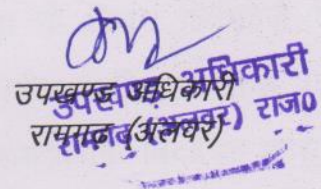 उपखण्ड अधिकारी
रामगढ़ (अलवर)
उपखण्ड अधिकारी
रामगढ (अलवर) राज०